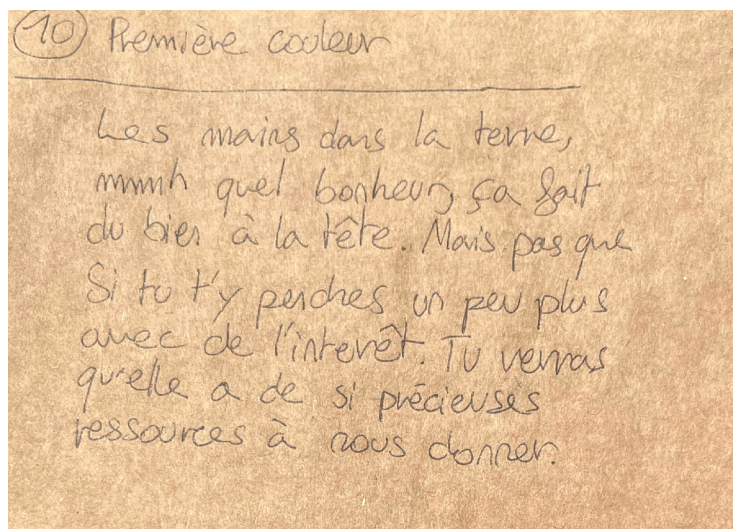 10 Première couleur
Les mains dans la terre,
mmmh quel bonheur, ça fait
du bien à la tête. Mais pas que
Si tu t'y penches un peu plus
avec de l'interêt. Tu verras
qu'elle a de si précieuses
ressources à nous donner.